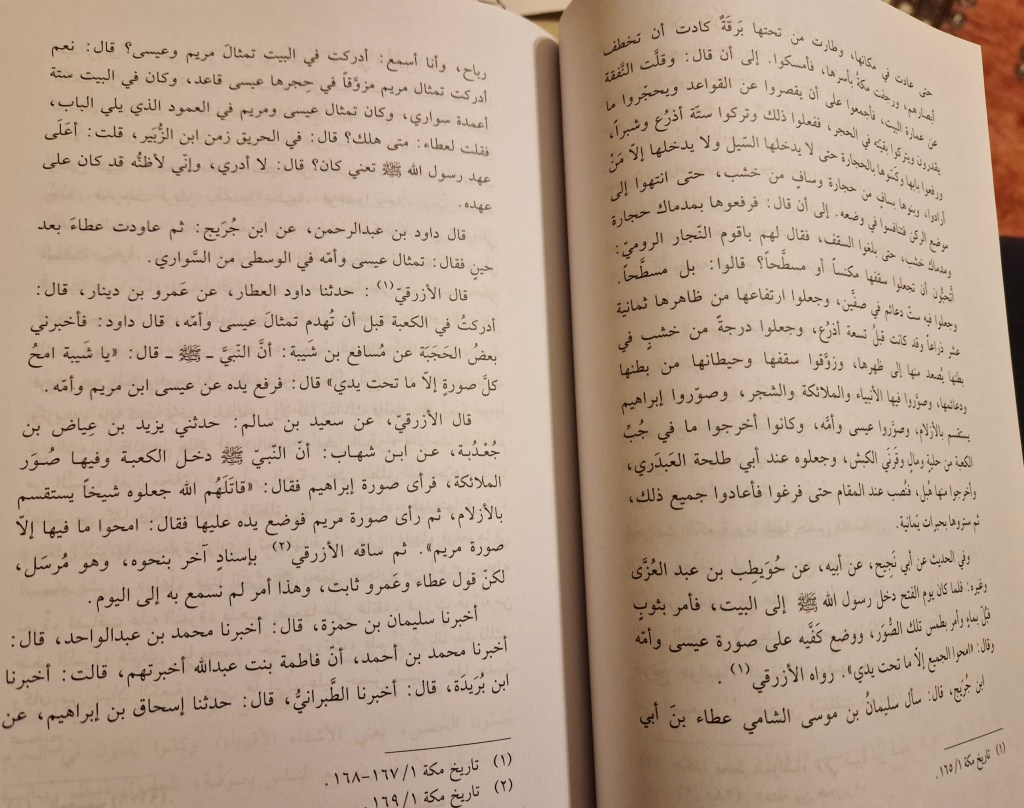 حتى عادت في مكانها، وطارت من تحتها بَرقَةٌ كادت أن تخطف
أبصارهم، ورجفت مكة بأسرها، فأمسكوا. إلى أن قال: وقلَّت النَّفقة
عن عمارة البيت، فأجمعوا على أن يقصروا عن القواعد ويحجّروا ما
يقدرون ويتركوا بقيّته في الحجر، ففعلوا ذلك وتركوا ستّة أذرُع وشبراً،
ورفعوا بابها وكسَوْها بالحجارة حتى لا يدخلها السَّيل ولا يدخلها إلاّ مَنْ
أرادوا، وبنوها بسافٍ من حجارة وسافٍ من خشب، حتى انتهوا إلى
موضع الركن فتنافسوا في وضعه. إلى أن قال: فرفعوها بمدماك حجارة
ومدماك خشب، حتى بلغوا السقف، فقال لهم باقوم النّجار الروميّ:
أتُحبُّون أن تجعلوا سقفها مكنساً أو مسطَّحاً؟ قالوا: بل مسطَّحاً.
وجعلوا فيه ستّ دعائم في صفَّين، وجعلوا ارتفاعها من ظاهرها ثمانية
عشر ذراعاً وقد كانت قبلُ تسعة أذرُع، وجعلوا درجةٌ من خشبٍ في
بطنها يُصعد منها إلى ظهرها، وزوَّقوا سقفها وحيطانها من بطنها
ودعائمها، وصوَّروا فيها الأنبياء والملائكة والشجر، وصوّروا إبراهيم
يستقسم بالأزلام، وصوَّروا عيسى وأمَّه، وكانوا أخرجوا ما في جُبِّ
الكعبة من حليةٍ ومالٍ وقَرنَي الكبش، وجعلوه عند أبي طلحة العَبدَري،
وأخرجوا منها هُبل، فنُصب عند المقام حتى فرغوا فأعادوا جميع ذلك،
ثم ستروها بحبرات يَمانية.
وفي الحديث عن أبي نَجِيح، عن أبيه، عن حُوَيطِب بن عبد العُزَّى
وغيره: فلما كان يوم الفتح دخل رسول الله ﷺ إلى البيت، فأمر بثوبٍ
فبُلّ بماءٍ وأمر بطمس تلك الصُّوَر، ووضع كَفَّيه على صورة عيسى وأمّه
وقال: «امحوا الجميع إلاّ ما تحت يدي». رواه الأزرقي (١).
ابن جُرَيج، قال: سأل سليمانُ بن موسى الشامي عطاء بنَ أبي
(١) تاريخ مكة ١/١٦٥.
رباح، وأنا أسمع: أدركت في البيت تمثالَ مريم وعيسى؟ قال: نعم
أدركت تمثال مريم مزوَّقاً في حِجرها عيسى قاعد، وكان في البيت ستة
أعمدة سواري، وكان تمثال عيسى ومريم في العمود الذي يلي الباب،
فقلت لعطاء: متى هلك؟ قال: في الحريق زمن ابن الزُّبَير، قلت: أعَلَى
عهد رسول الله ﷺ تعني كان؟ قال: لا أدري، وإنّي لأظنُّه قد كان على
عهده.
قال داود بن عبدالرحمن، عن ابن جُرَيج: ثم عاودت عطاءَ بعد
حينٍ فقال: تمثال عيسى وأمّه في الوسطى من السَّواري.
قال الأزرقيّ(١): حدثنا داود العطار، عن عَمرو بن دينار، قال:
أدركتُ في الكعبة قبل أن تُهدم تمثالَ عيسى وأمّه، قال داود: فأخبرني
بعضُ الحَجَبَة عن مُسافع بن شَيبة: أنَّ النبيَّ ـ ﷺ ـ قال: «يا شَيبة امحُ
كلَّ صورةٍ إلاّ ما تحت يدي» قال: فرفع يده عن عيسى ابن مريم وأمّه.
قال الأزرقيّ، عن سعيد بن سالم: حدثني يزيد بن عِياض بن
جُعْدُبة، عن ابن شهاب: أنّ النّبيّ ﷺ دخل الكعبة وفيها صُوَر
الملائكة، فرأى صورة إبراهيم فقال: «قاتَلَهُم الله جعلوه شيخاً يستقسم
بالأزلام، ثم رأى صورة مريم فوضع يده عليها فقال: امحوا ما فيها إلاّ
صورة مريم». ثم ساقه الأزرقي(٢) بإسنادٍ آخر بنحوه، وهو مُرسَل،
لكنّ قول عطاء وعَمرو ثابت، وهذا أمر لم نسمع به إلى اليوم.
أخبرنا سليمان بن حمزة، قال: أخبرنا محمد بن عبدالواحد، قال:
أخبرنا محمد بن أحمد، أنّ فاطمة بنت عبدالله أخبرتهم، قالت: أخبرنا
ابن بُرَيدَة، قال: أخبرنا الطَّبرانيُّ، قال: حدثنا إسحاق بن إبراهيم، عن
(١) تاريخ مكة ١/١٦٧-١٦٨.
(٢) تاريخ مكة ١/١٦٩.